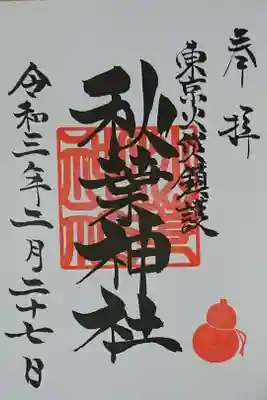 奉拝
東京火防鎮護
秋葉神社
令和三年二月二十七日